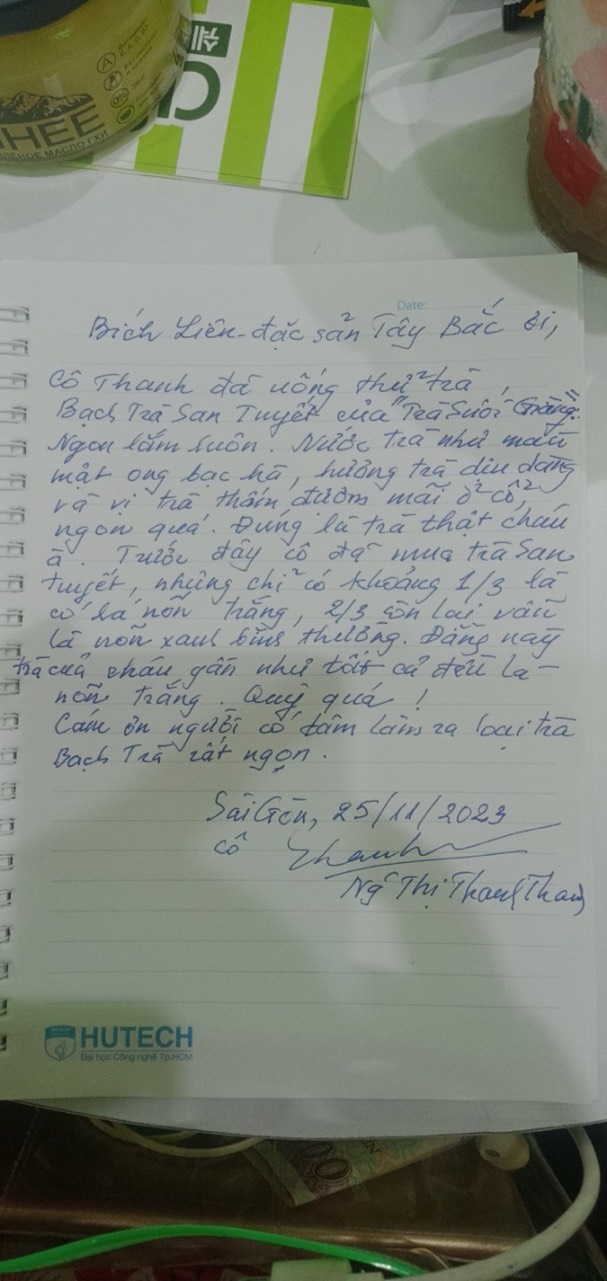 쉐
CJ
HEE
ЛЕНОЕ МАСЛО ГХИ
Date:
Bích Liên - đặc sản Tây Bắc ơi,
Cô Thanh đã uống thử trà,
Bạch Trà San Tuyết của "Trà Suối Giàng".
Ngon lắm luôn. Nước trà như màu
mật ong bạc hà, hương trà dịu dàng
và vị trà thấm đượm mãi ở cổ,
ngon quá. Đúng là trà thật cháu
ạ. Trước đây cô đã mua trà San
tuyết, nhưng chỉ có khoảng 1/3 là
có lá nõn trắng, 2/3 còn lại vẫn
là nõn xanh bình thường. Đằng này
trà của cháu gần như tất cả đều là
nõn trắng. Quý quá!
Cám ơn người có tâm làm ra loại trà
Bạch Trà rất ngon.
Sài Gòn, 25/11/2023
cô Thanh
Ngô Thị Thanh Thanh
HUTECH
Đại học Công nghệ Tp.HCM